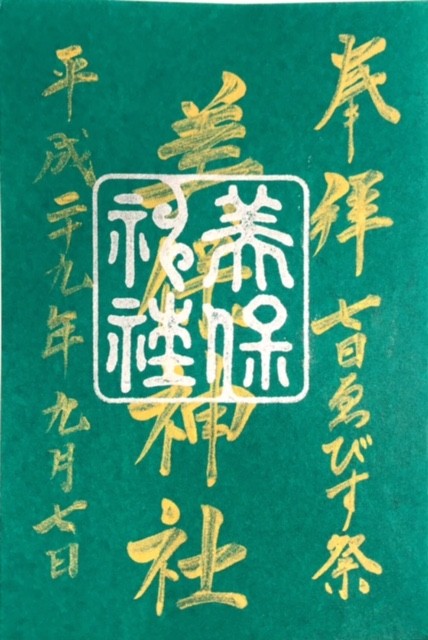 奉拝 七日ゑびす祭
美保神社
美保神社
平成二十九年九月七日